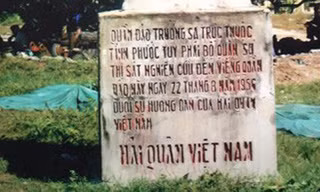 QUẦN ĐẢO TRƯỜNG SA TRỰC THUỘC
TỈNH PHƯỚC TUY PHÁI BỘ QUÂN SỰ
THỊ SÁT NGHIÊN CỨU ĐẾN VIẾNG QUẦN
ĐẢO NÀY NGÀY 22 THÁNG 8 NĂM 1956
DƯỚI SỰ HƯỚNG DẪN CỦA HẢI QUÂN
VIỆT NAM
HẢI QUÂN VIỆT NAM